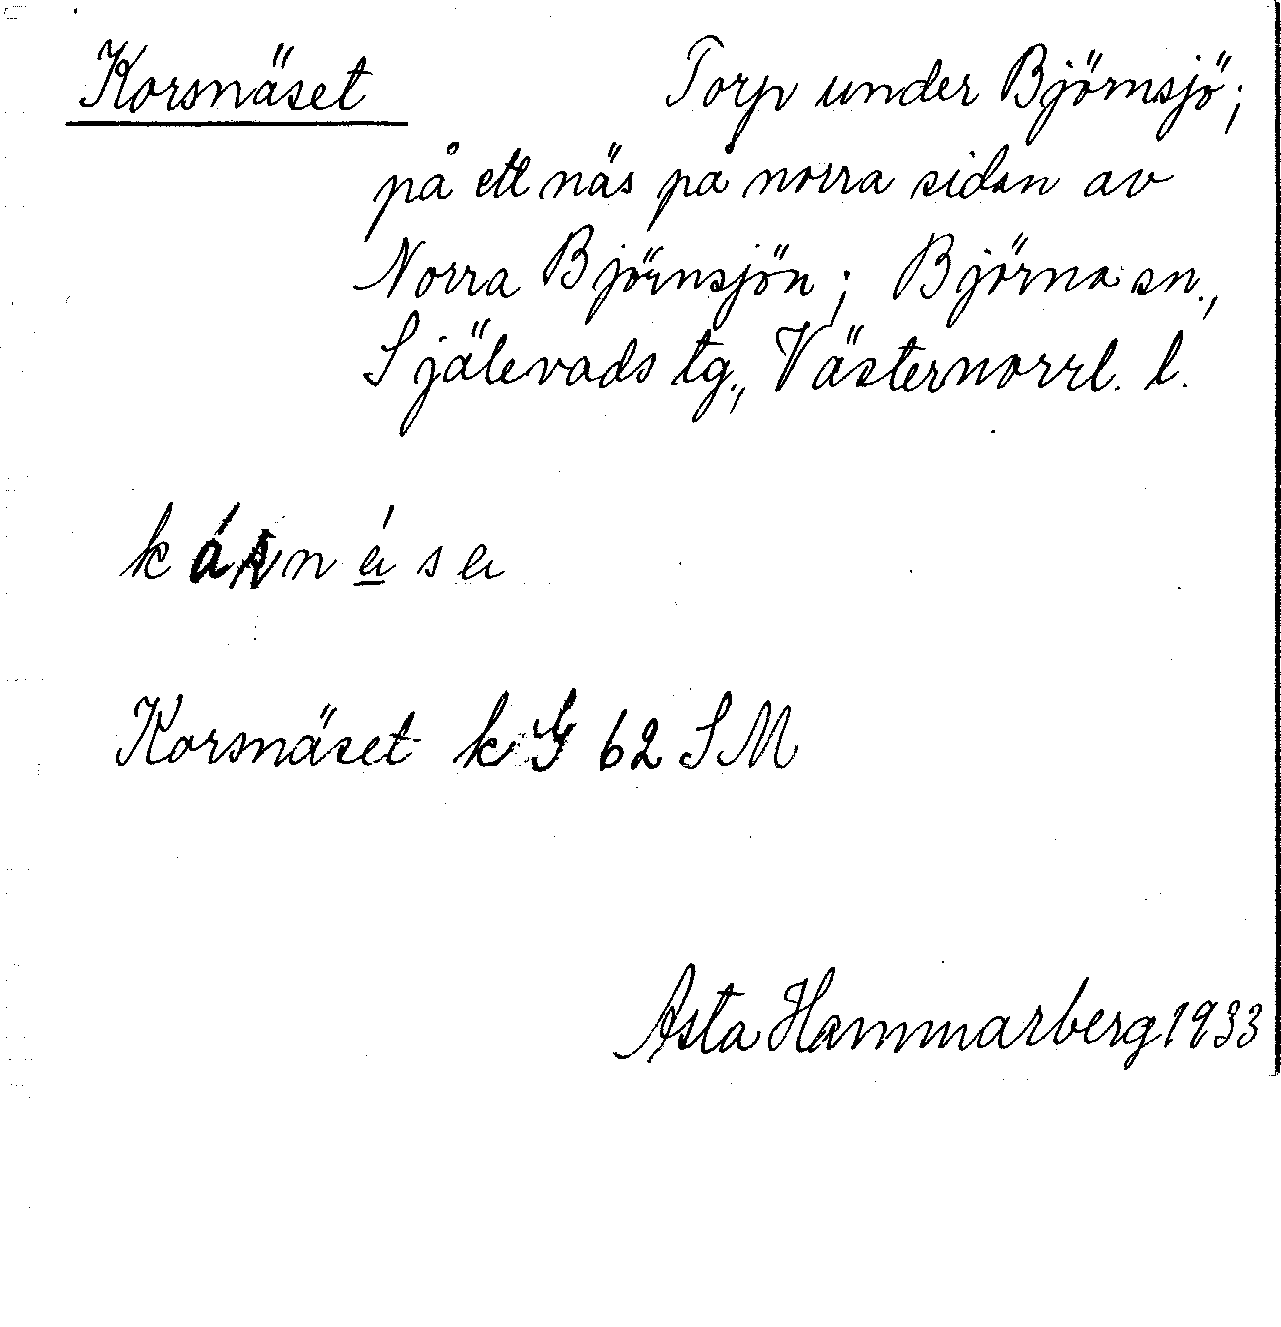 Korsnäset Torp under Björnsjö;
på ett näs på norra sidan av
Norra Björnsjön; Björna sn.,
Själevads tg., Västernorrl. l.
Korsnäset kG 62 SM
Asta Hammarberg 1933